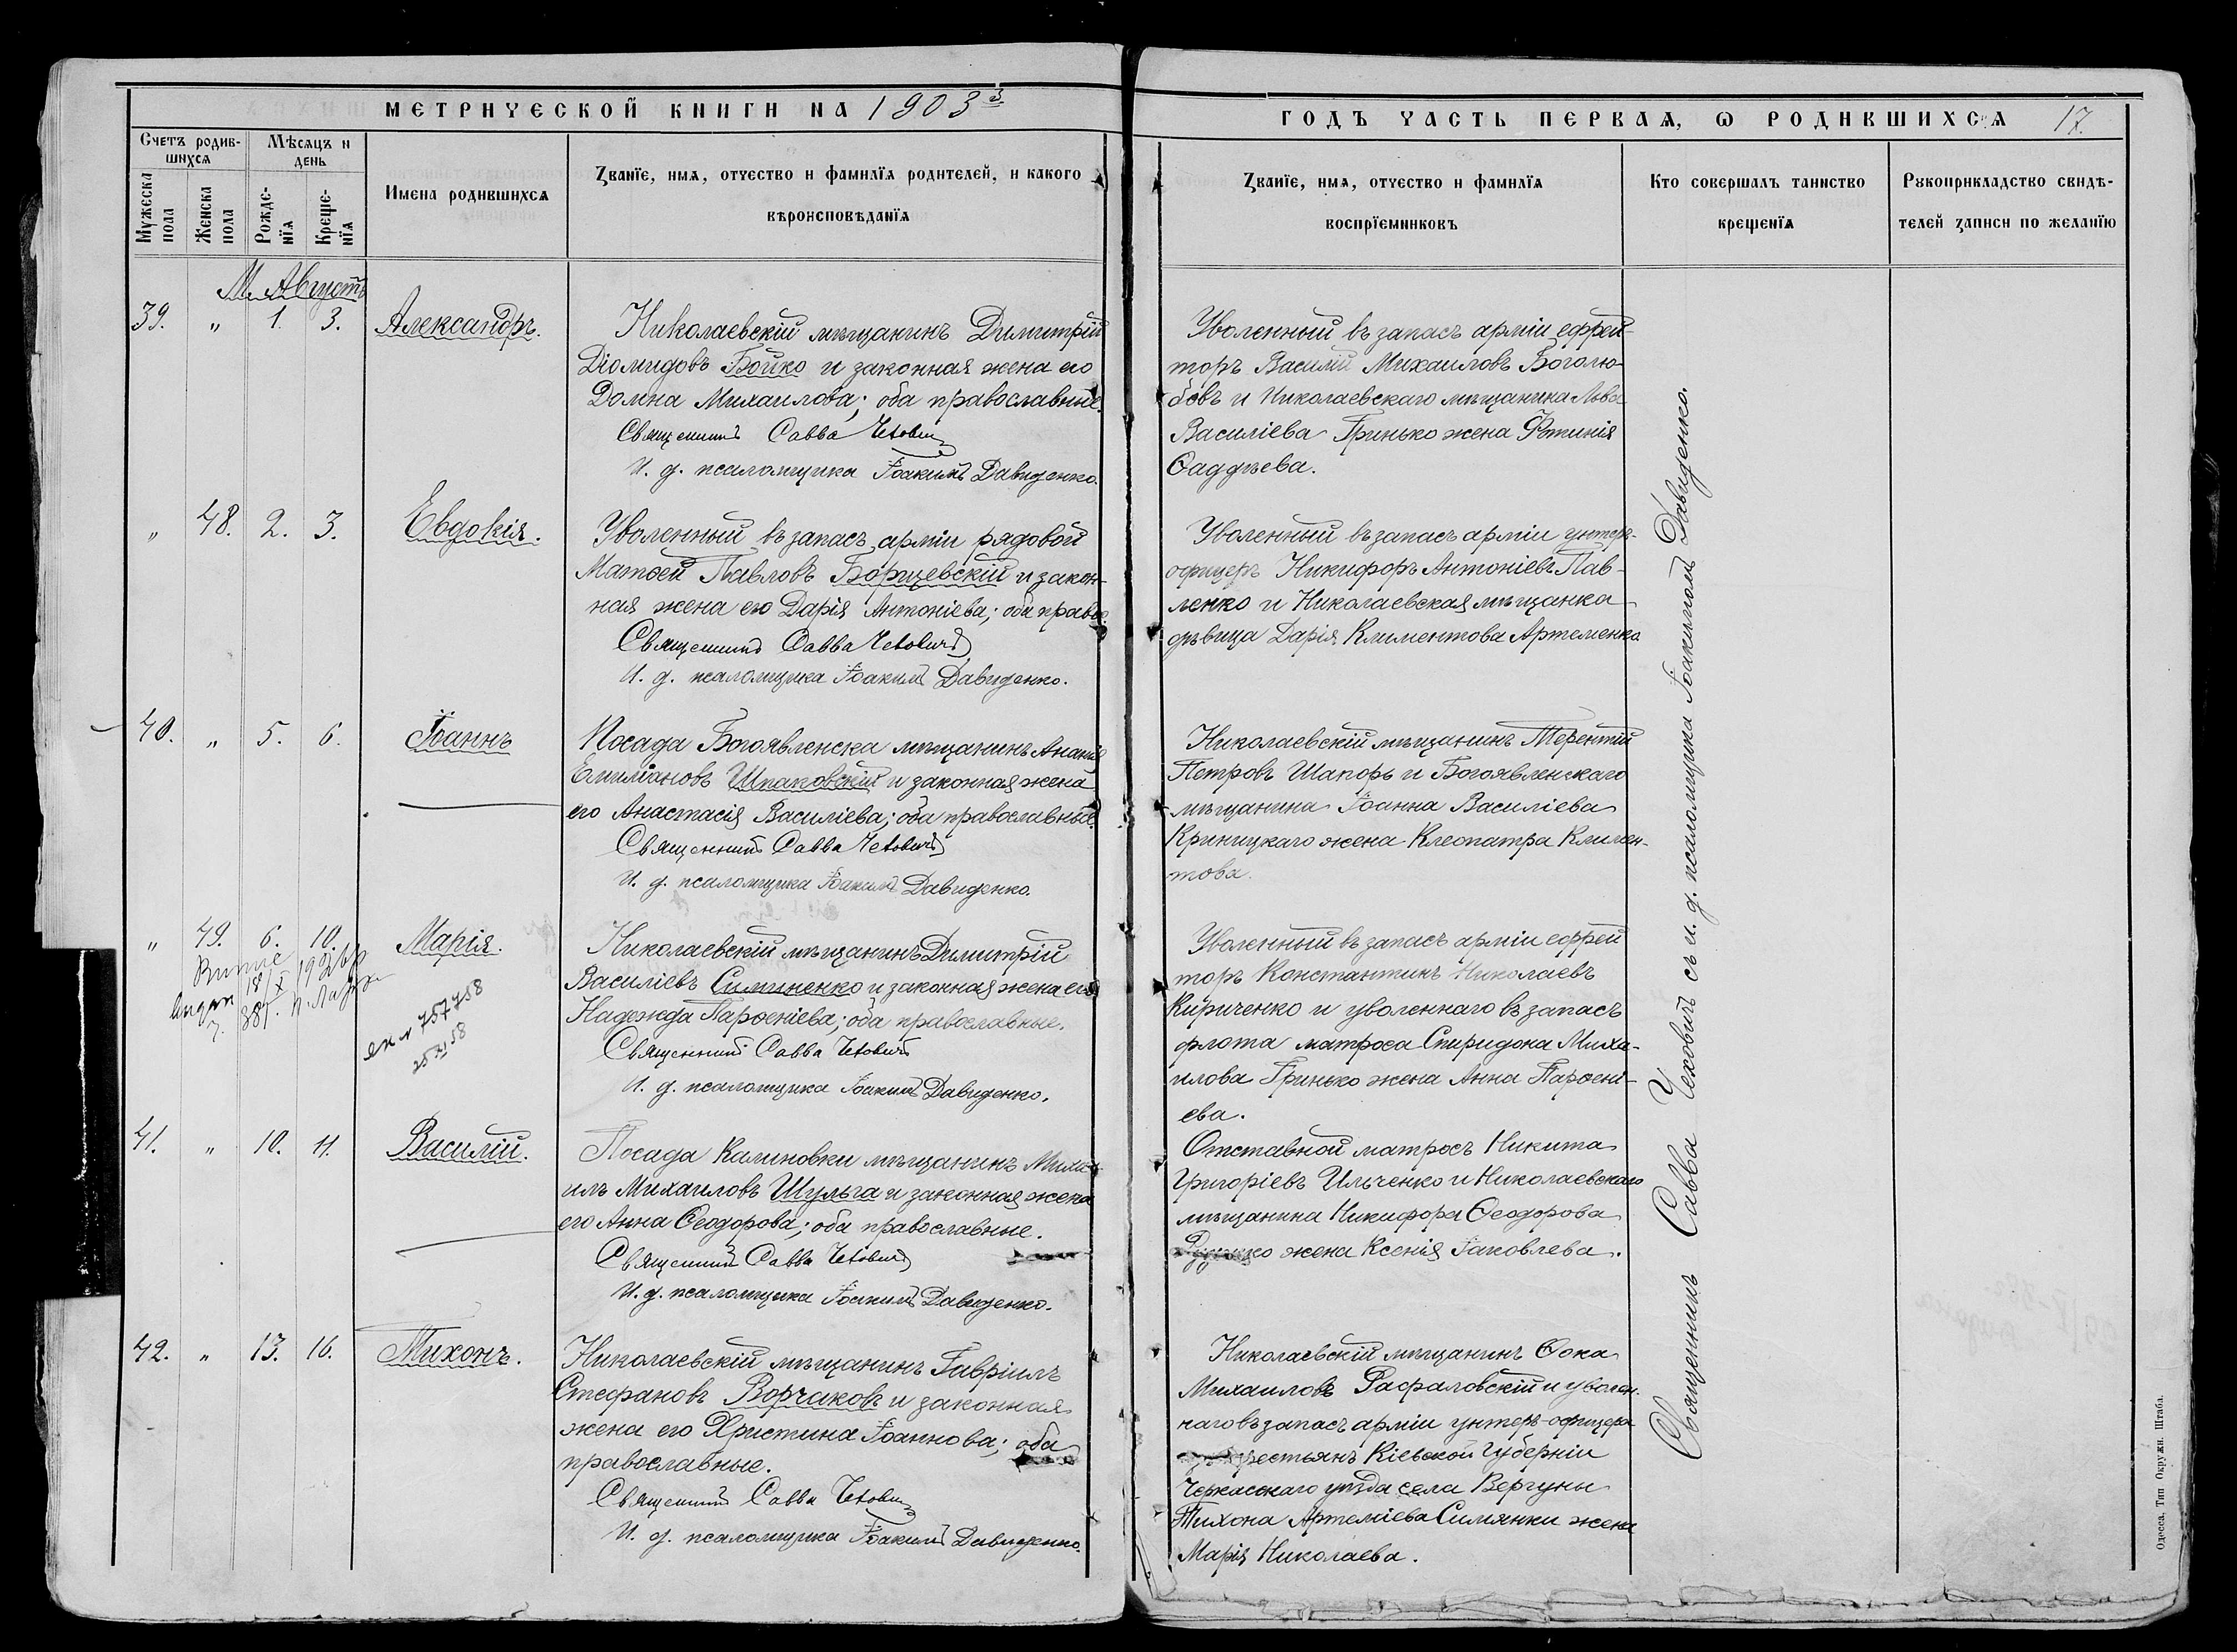 МЕТРИЧЕСКОЙ КНИГИ НА 1903 3
Счетъ родившихся
Мѣсяцъ и день
Мужеска пола
Женска пола
Рожденїя
Крещенїя
Имена родившихся
Званїе, имя, отчество и фамилїя родителей, и какого
вѣроисповѣданїя
М. Августъ
39. " 1. 3. Александръ.
Николаевскій мѣщанинъ Димитрій
Діомидовъ Бойко и законная жена его
Домна Михаилова; оба православные.
Священникъ Савва
И. д. псаломщика Іоакимъ Давиденко.
" 48. 2. 3. Евдокія.
Уволенный въ запасъ арміи рядовой
Матѳей Павловъ Борщевскій и закон-
ная жена его Дарія Антоніева; оба правос.
Священникъ Савва
И. д. псаломщика Іоакимъ Давиденко.
40. " 5. 6. Іоаннъ
Посада Богоявленска мѣщанинъ Ананія
Емиліановъ Шпаковскій и законная жена
его Анастасія Василіева; оба православные.
Священникъ Савва
И. д. псаломщика Іоакимъ Давиденко.
" 49. 6. 10. Марія.
757758
Николаевскій мѣщанинъ Димитрій
Василіевъ Симиненко и законная жена его
Надежда Парѳеніева; оба православные.
Священникъ Савва
И. д. псаломщика Іоакимъ Давиденко.
41. " 10. 11. Василій.
Посада Калиновки мѣщанинъ Миха-
илъ Михаиловъ Шульга и законная жена
его Анна Ѳеодорова; оба православные.
Священникъ Савва
И. д. псаломщика Іоакимъ Давиденко.
42. " 13. 16. Тихонъ.
Николаевскій мѣщанинъ Гавріилъ
Стефановъ Ворчаковъ и законная
жена его Христина Іоаннова; оба
православные.
Священникъ Савва
И. д. псаломщика Іоакимъ Давиденко.
ГОДЪ ЧАСТЬ ПЕРВАЯ, Ѡ РОДИВШИХСЯ 17.
Званїе, имя, отчество и фамилїя
воспрїемниковъ
Кто совершалъ таинство
крещенїя
Рукоприкладство свидѣ-
телей записи по желанїю
Уволенный въ запасъ арміи ефрей-
торъ Василій Михаиловъ Боголю-
бовъ и Николаевскаго мѣщанина Льва
Василіева Гринько жена Фотинія
Ѳаддѣева.
Уволенный въ запасъ арміи унтеръ-
офицеръ Никифоръ Антоніевъ Пав-
ленко и Николаевская мѣщанка
дѣвица Дарія Климентова Артеменко
Николаевскій мѣщанинъ Терентій
Петровъ Шапоръ и Богоявленскаго
мѣщанина Іоанна Василіева
Криницкаго жена Клеопатра Климен-
това.
Уволенный въ запасъ арміи ефрей
торъ Константинъ Николаевъ
Кириченко и уволеннаго въ запасъ
флота матроса Спиридона Миха-
илова Гринько жена Анна Парѳені-
ева.
Отставной матросъ Никита
Григоріевъ Ильченко и Николаевскаго
мѣщанина Никифора Ѳеодорова
жена Ксенія Іаковлева.
Николаевскій мѣщанинъ Ѳока
Михаиловъ Рафаловскій и уволен-
наго въ запасъ арміи унтеръ-офицера
крестьянъ Кіевской губерніи
Черкасскаго уѣзда села Вергуны
Тихона Артеміева Симянки жена
Марія Николаева.
Священникъ Савва Чеховичъ съ и. д. псаломщика Іоакимомъ Давиденко.
Одесса, Тип Окружн. Штаба.